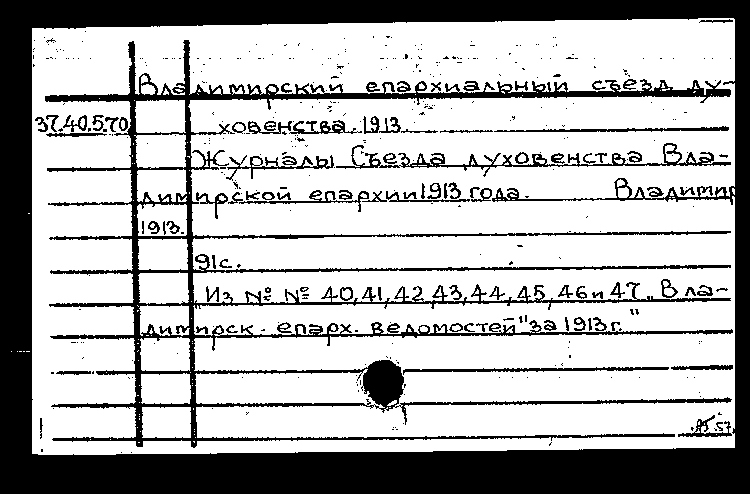 Владимирский епархиальный съезд ду-
37.40.5.70 ховенства. 1913
Журналы Съезда духовенства Вла-
димирской епархии 1913 года. Владимир
1913.
91с.
Из №№ 40,41,42,43,44,45,46 и 47 „Вла-
димирск. епарх. ведомостей" за 1913г."
57